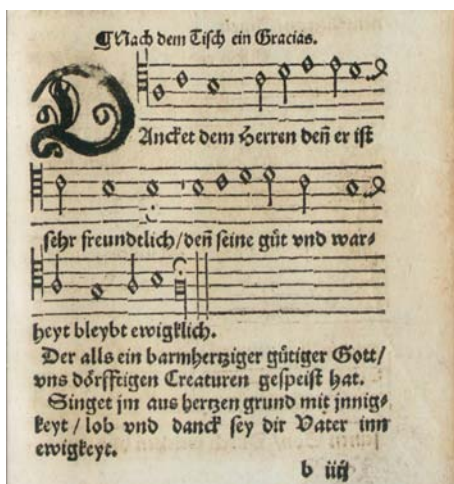 ¶ Nach dem Tisch ein Gracias.
DAncket dem Herren deñ er ist
sehr freundtlich/deñ seine güt vnd war⸗
heyt bleybt ewigklich.
Der alls ein barmhertziger gütiger Gott/
vns dörfftigen Creaturen gespeist hat.
Singet jm aus hertzen grund mit jnnig⸗
keyt / lob vnd danck sey dir Vater inn
ewigkeyt.
b iiij